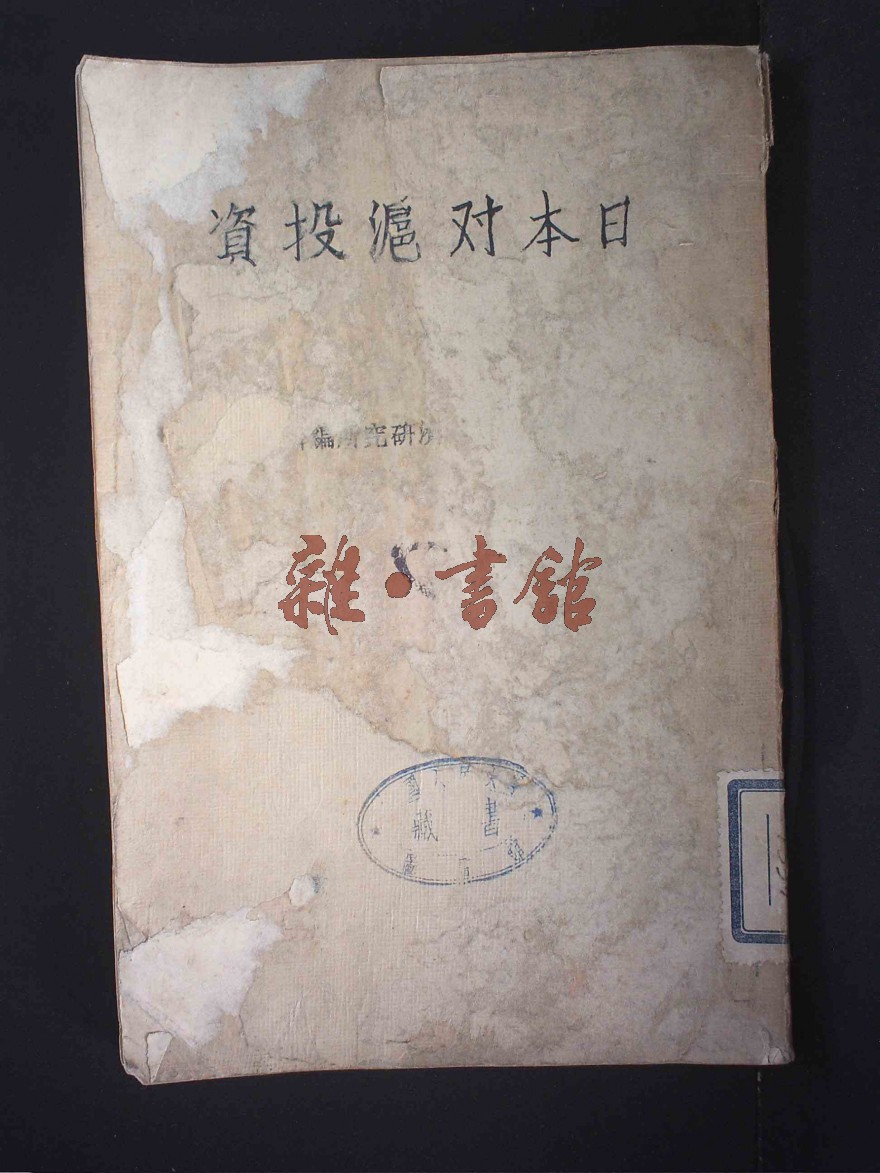 日本对滬投資
研究所編
雜·書館
書
藏